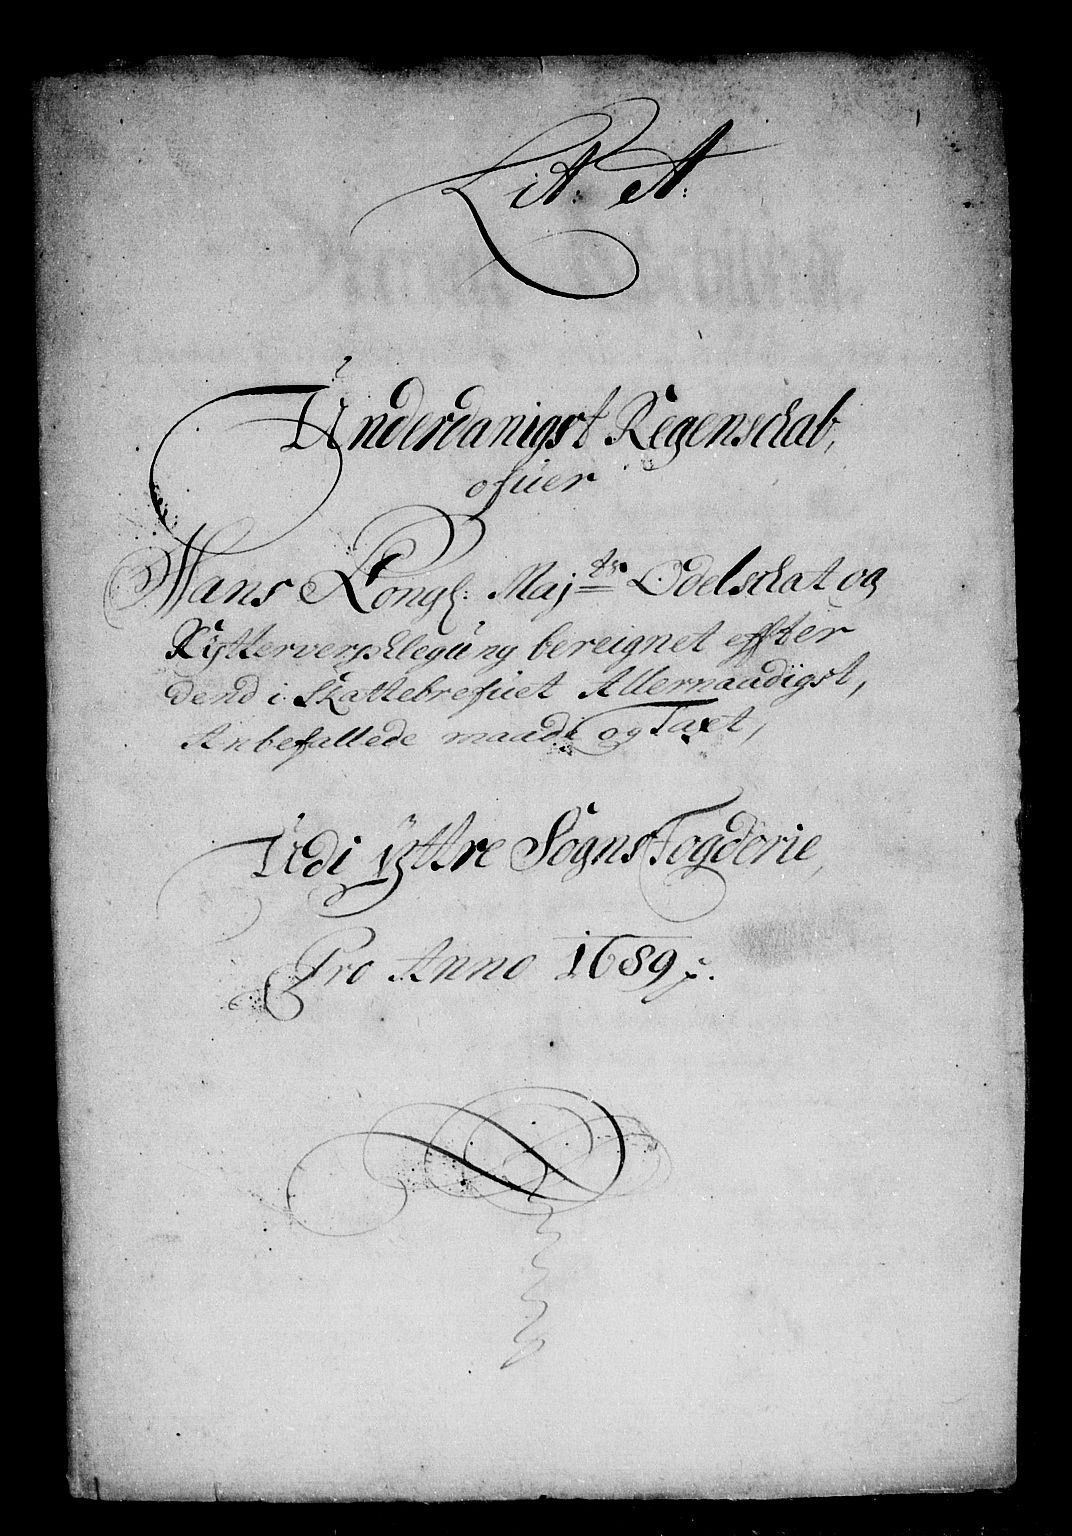 Lit: A:
Underdanigst Regenschab,
ofuer
Hans Kongl: Majtz Odelschat og
Rytterverpflegung bereignet effter
dend i Skattebrefuet Allernaadigst,
Anbefallede maade og Taxt,
Udi yttre Sogns Fogderie,
Pro Anno 1689